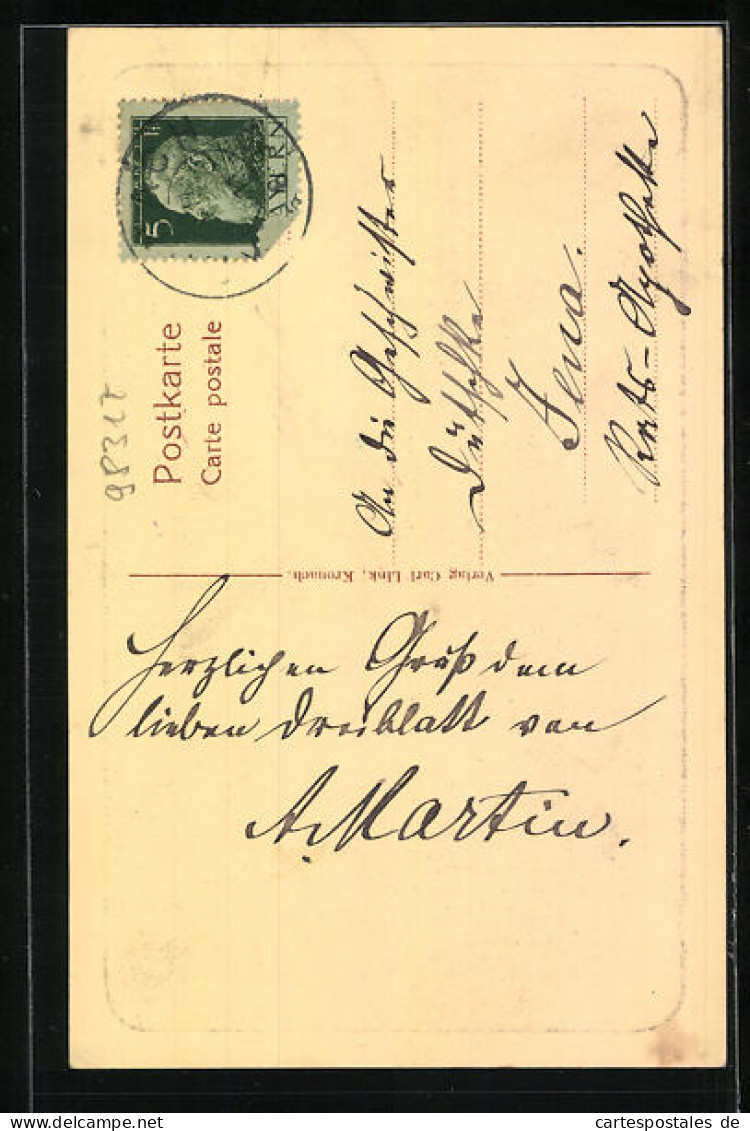 5
BAYERN
Postkarte
Carte postale
98317
An die Geschwister
Jena.
Rats-Apotheke
Verlag Carl Link, Kronach.
Herzlichen Gruß dem
lieben Dreiblatt von
A. Martin.
cartespostales.de